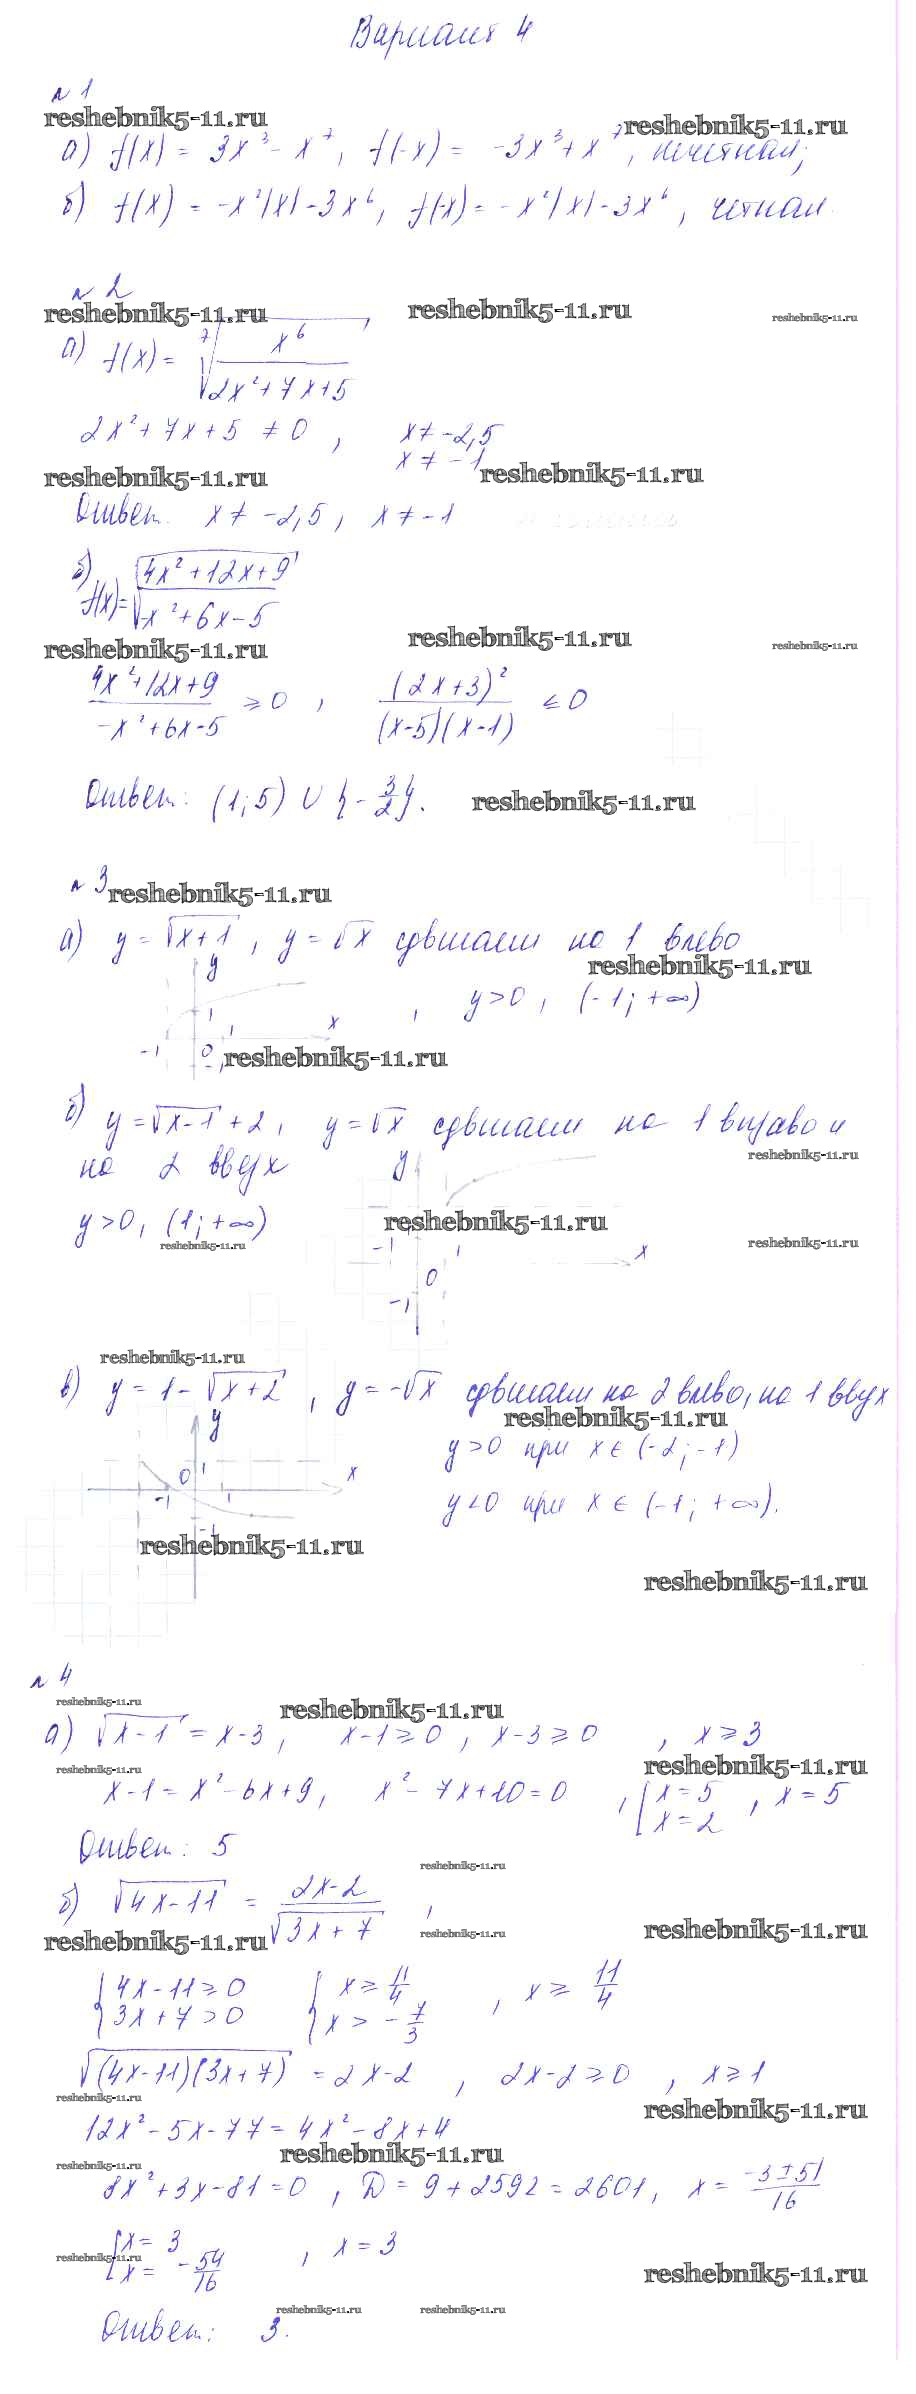 Вариант 4
№ 1
reshebnik5-11.ru reshebnik5-11.ru
а) f(x) = 3x³ - x⁷, f(-x) = -3x³ + x⁷, нечетная;
б) f(x) = -x²|x| - 3x⁶, f(-x) = -x²|x| - 3x⁶, четная.
№ 2
reshebnik5-11.ru reshebnik5-11.ru reshebnik5-11.ru
а) f(x) = ⁷√(x⁶/(2x² + 7x + 5))
2x² + 7x + 5 ≠ 0, x ≠ -2,5
x ≠ -1
reshebnik5-11.ru reshebnik5-11.ru
Ответ. x ≠ -2,5, x ≠ -1
б) f(x) = √((4x² + 12x + 9)/(-x² + 6x - 5))
reshebnik5-11.ru reshebnik5-11.ru reshebnik5-11.ru
(4x² + 12x + 9)/(-x² + 6x - 5) ≥ 0, (2x + 3)²/((x - 5)(x - 1)) ≤ 0
Ответ: (1; 5) ∪ {-3/2}. reshebnik5-11.ru
№ 3 reshebnik5-11.ru
а) y = √(x + 1), y = √x сдвигаем на 1 влево
reshebnik5-11.ru
y
1 1 x
, y > 0, (-1; +∞)
-1 0 -1 reshebnik5-11.ru
б) y = √(x - 1) + 2, y = √x сдвигаем на 1 вправо и
на 2 вверх y reshebnik5-11.ru
y > 0, (1; +∞) reshebnik5-11.ru
reshebnik5-11.ru reshebnik5-11.ru
-1 1 1 x
0
-1
reshebnik5-11.ru
в) y = 1 - √(x + 2), y = -√x сдвигаем на 2 влево, на 1 вверх
reshebnik5-11.ru
y
y > 0 при x ∈ (-2; -1)
0 1 x
-1 1
y < 0 при x ∈ (-1; +∞).
-1
reshebnik5-11.ru
reshebnik5-11.ru
№ 4
reshebnik5-11.ru reshebnik5-11.ru
а) √(x - 1) = x - 3, x - 1 ≥ 0, x - 3 ≥ 0, x ≥ 3
reshebnik5-11.ru reshebnik5-11.ru
x - 1 = x² - 6x + 9, x² - 7x + 10 = 0, [x = 5, x = 5
x = 2
Ответ: 5
reshebnik5-11.ru
б) √(4x - 11) = (2x - 2)/√(3x + 7),
reshebnik5-11.ru reshebnik5-11.ru reshebnik5-11.ru
{4x - 11 ≥ 0 {x ≥ 11/4, x ≥ 11/4
3x + 7 > 0 x > -7/3
√((4x - 11)(3x + 7)) = 2x - 2, 2x - 2 ≥ 0, x ≥ 1
reshebnik5-11.ru reshebnik5-11.ru
12x² - 5x - 77 = 4x² - 8x + 4
reshebnik5-11.ru reshebnik5-11.ru
8x² + 3x - 81 = 0, D = 9 + 2592 = 2601, x = (-3 ± 51)/16
[x = 3
x = -54/16, x = 3
reshebnik5-11.ru reshebnik5-11.ru
reshebnik5-11.ru reshebnik5-11.ru
Ответ: 3.